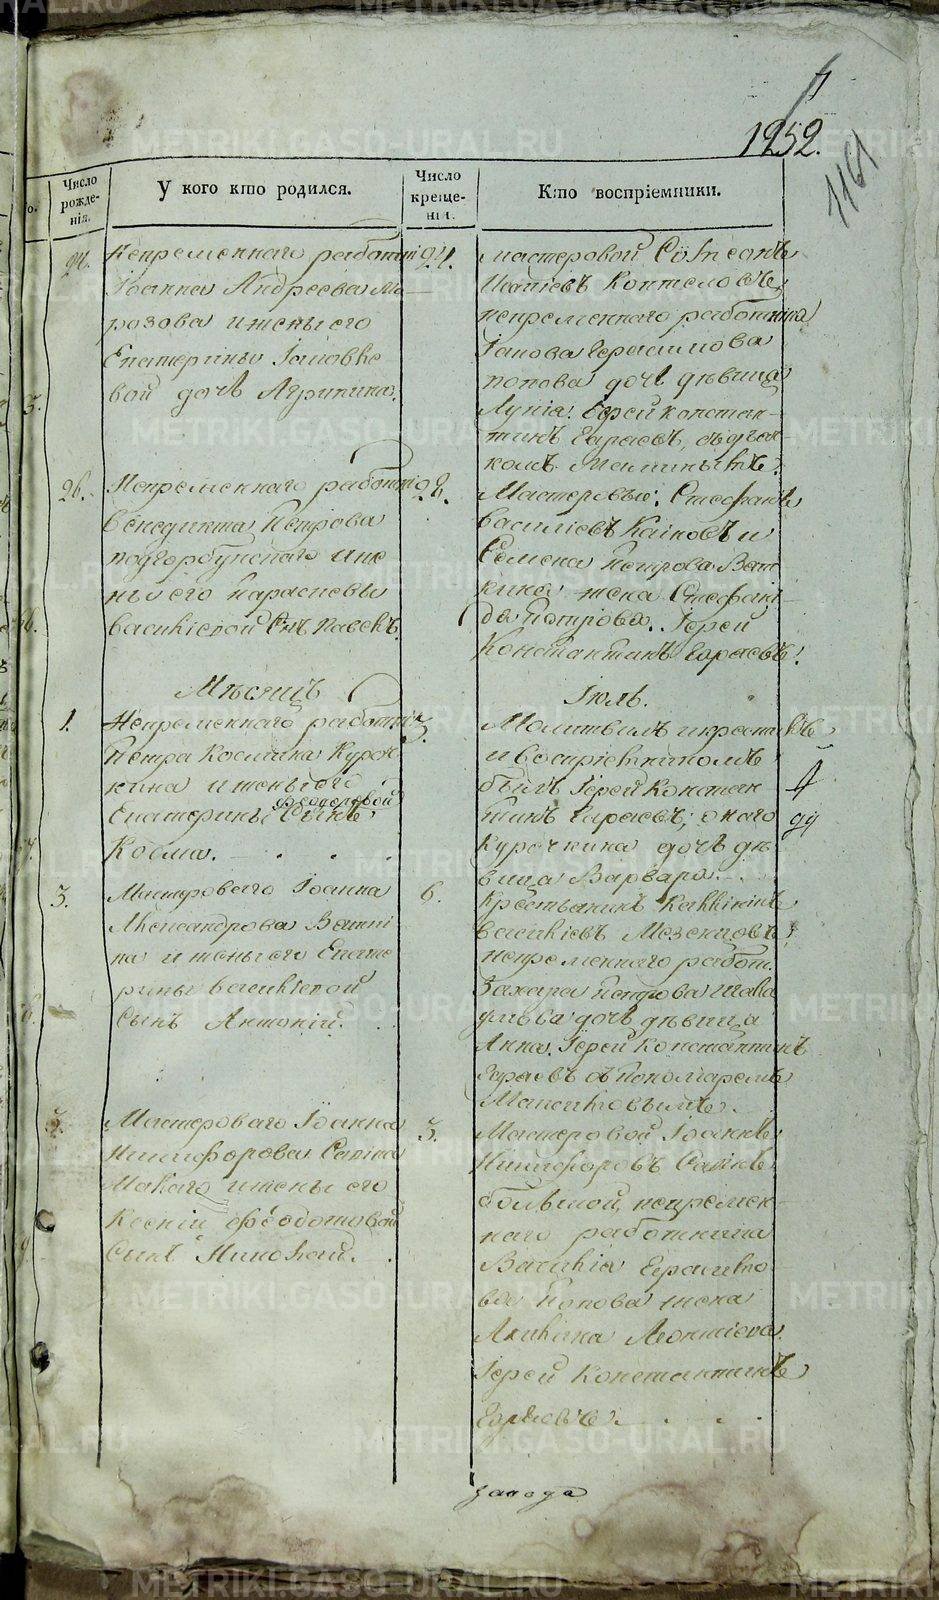 1252.
1161
Число рожде-нія.
У кого кто родился.
Число креще-нія.
Кто воспріемники.
24.
Непременнаго работни
Іоанна Андреева Мо
розова и жены его
Екатерины Іаковле
вой дочь Агрипина.
24.
мастеровой Сѵмеонъ
Коптеловъ,
непременнаго работника
Іакова Герасимова
попова дочь дѣвица
Іерей констан-
тинъ съ дьяч-
комъ
26.
Непременнаго работни
Венедикта Петрова
подгорбунскаго и же
ны его Парасковьи
васильевой Сынъ Павелъ.
28.
Мастеровые: Стефанъ
василіевъ и
Семена Петрова Вят
кина жена Стефани
да Петрова. Іерей
Константинъ
Мѣсяцъ
Іюль.
1.
Непременнаго работни
Петра Космина Куроч
кина и жены его
Феодоровой
Екатерины Сынъ
Косма.
3.
Молитвилъ и крестилъ
и воспріемникомъ
былъ Іерей Констан
тинъ онаго
Курочкина дочь дѣ
вица Варвара.
3.
Мастероваго Іоанна
Александрова Вятки
на и жены его Екате
рины васильевой
Сынъ Антоній.
6.
Крестьянинъ
василіевъ Мезенцовъ,
непременнаго работ.
Захара Петрова
дочь дѣвица
Анна. Іерей Константинъ
съ Пономаремъ
5.
Мастероваго Іоанна
Никифорова Сапина
Малаго и жены его
Ксеніи Феодотовой
Сынъ Николай.
5.
Мастеровой Іоаннъ
Никифоровъ Сапинъ
большой, непремен-
наго работника
Василія
ва Попова жена
Акилина Леонтіева.
Іерей Константинъ
завода
METRIKI.GASO-URAL.RU